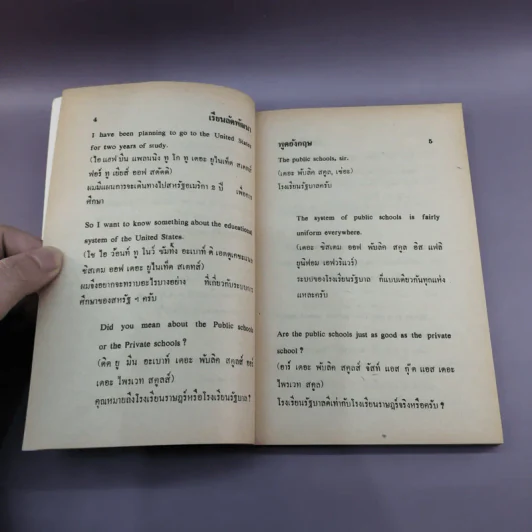 4 เรียนลัดพัฒนา
I have been planning to go to the United States
for two years of study.
(ไอ แฮฟ บีน แพลนนิ่ง ทู โก ทู เดอะ ยูไนเท็ด สเตทส์
ฟอร์ ทู เยียส์ ออฟ สตัดดี)
ผมมีแผนการจะเดินทางไปสหรัฐอเมริกา ๒ ปี เพื่อการ
ศึกษา
So I want to know something about the educational
system of the United States.
(โซ ไอ ว้อนท์ ทู โนว์ ซัมทิ้ง อะเบาท์ ดิ เอดดูเคชะแนล
ซิสเตม ออฟ เดอะ ยูไนเท็ด สเตทส์)
ผมจึงอยากจะทราบอะไรบางอย่าง ที่เกี่ยวกับระบบการ
ศึกษาของสหรัฐ ฯ ครับ
Did you mean about the Public schools
or the Private schools ?
(ดิด ยู มีน อะเบาท์ เดอะ พับลิค สคูลส์ ออร์
เดอะ ไพรเวท สคูลส์)
คุณหมายถึงโรงเรียนราษฎร์หรือโรงเรียนรัฐบาล ?
พูดอังกฤษ 5
The public schools, sir.
(เดอะ พับลิค สคูล, เซ่อะ)
โรงเรียนรัฐบาลครับ
The system of public schools is fairly
uniform everywhere.
(เดอะ ซิสเตม ออฟ พับลิค สคูล อิส แฟลิ
ยูนิฟอม เอฟวรีแวร์)
ระบบของโรงเรียนรัฐบาล ก็แบบเดียวกันทุกแห่ง
แหละครับ
Are the public schools just as good as the private
school ?
(อาร์ เดอะ พับลิค สคูลส์ จัสท์ แอส กู๊ด แอส เดอะ
ไพรเวท สคูล)
โรงเรียนรัฐบาลดีเท่ากับโรงเรียนราษฎร์จริงหรือครับ ?